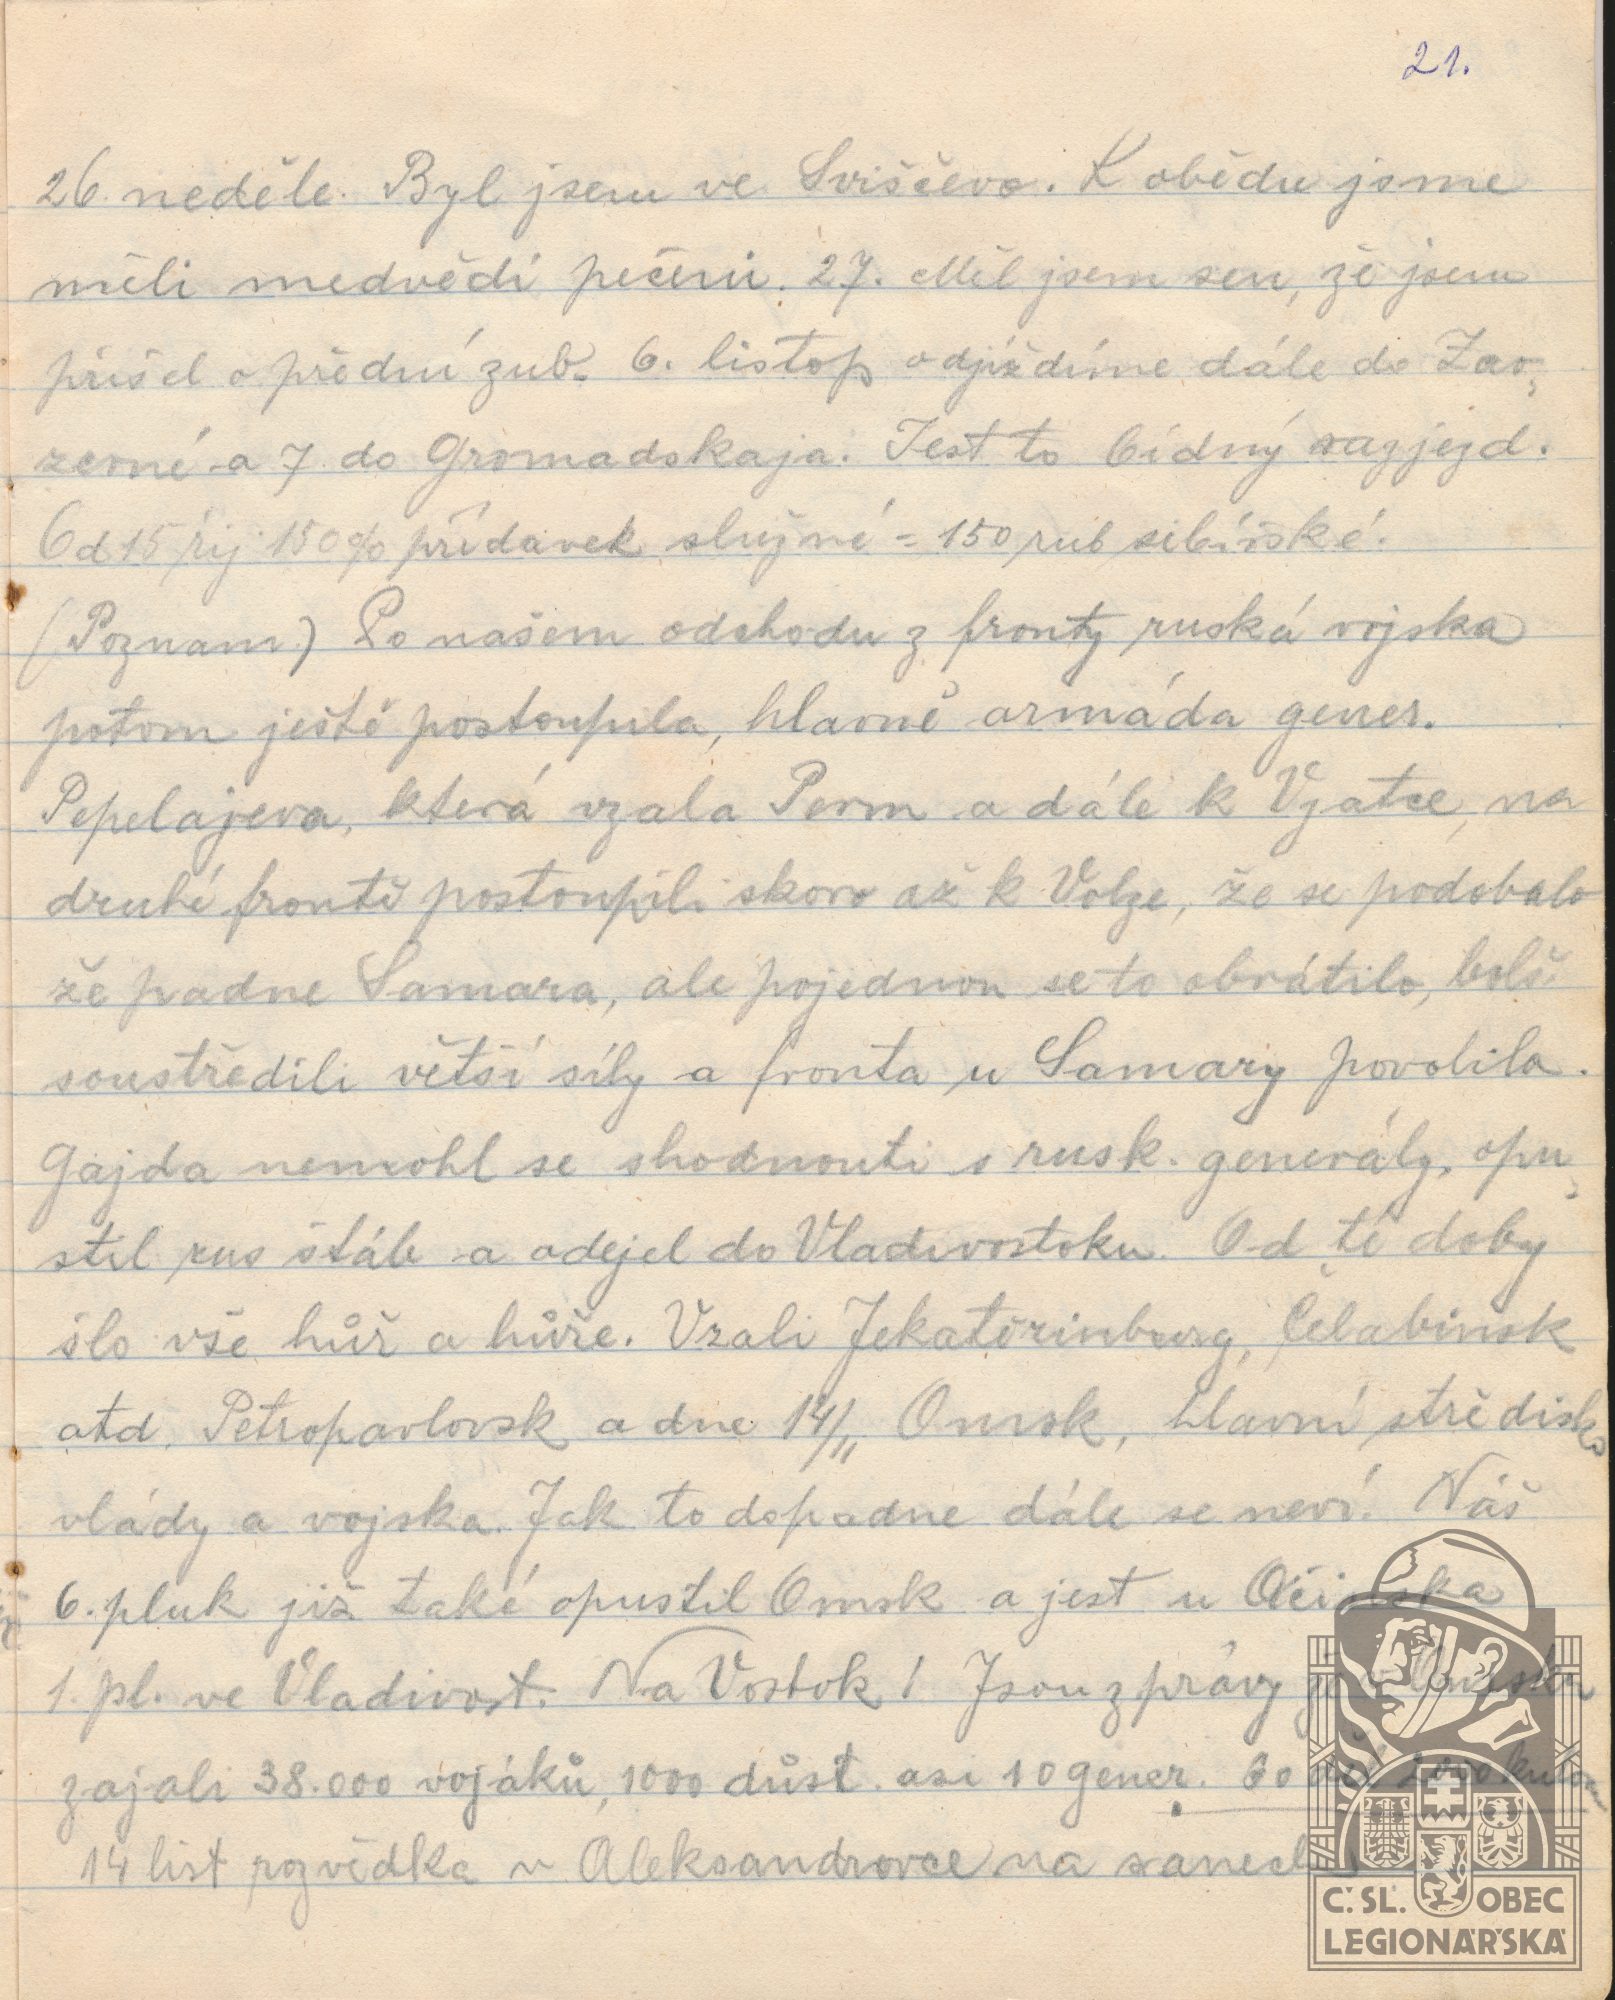 21.
26. neděle. Byl jsem ve Sviščevo. K obědu jsme
měli medvědí pečeni. 27. Měl jsem sen, že jsem
přišel o přední zub. 6. listop odjíždíme dále do Zao-
zerné a 7. do Gromadskaja. Jest to bídný razjezd.
Od 15 říj 150% přídavek služné = 150 rub sibířské.
(Poznam.) Po našem odchodu z fronty ruská vojska
potom ještě postoupila, hlavně armáda gener.
Pepelajeva, která vzala Perm a dále k Vjatce, na
druhé frontě postoupili skoro až k Volze, že se podobalo
že padne Samara, ale pojednou se to obrátilo, bolš.
soustředili větší síly a fronta u Samary povolila.
Gajda nemohl se shodnouti s rusk. generály, opu-
stil rus štáb a odejel do Vladivostoku. Od té doby
šlo vše hůř a hůře. Vzali Jekatěrinburg, Čelabinsk
atd. Petropavlovsk a dne 14/11 Omsk, hlavní středisko
vlády a vojska. Jak to dopadne dále se neví. Náš
6. pluk již také opustil Omsk a jest u Ačinska
1. pl. ve Vladivost. Na Vostok! Jsou zprávy
zajali 38.000 vojáků, 1000 důst. asi 10 gener.
14 list rozvědka v Aleksandrovce na sanech
Č. SL. OBEC
LEGIONÁŘSKÁ